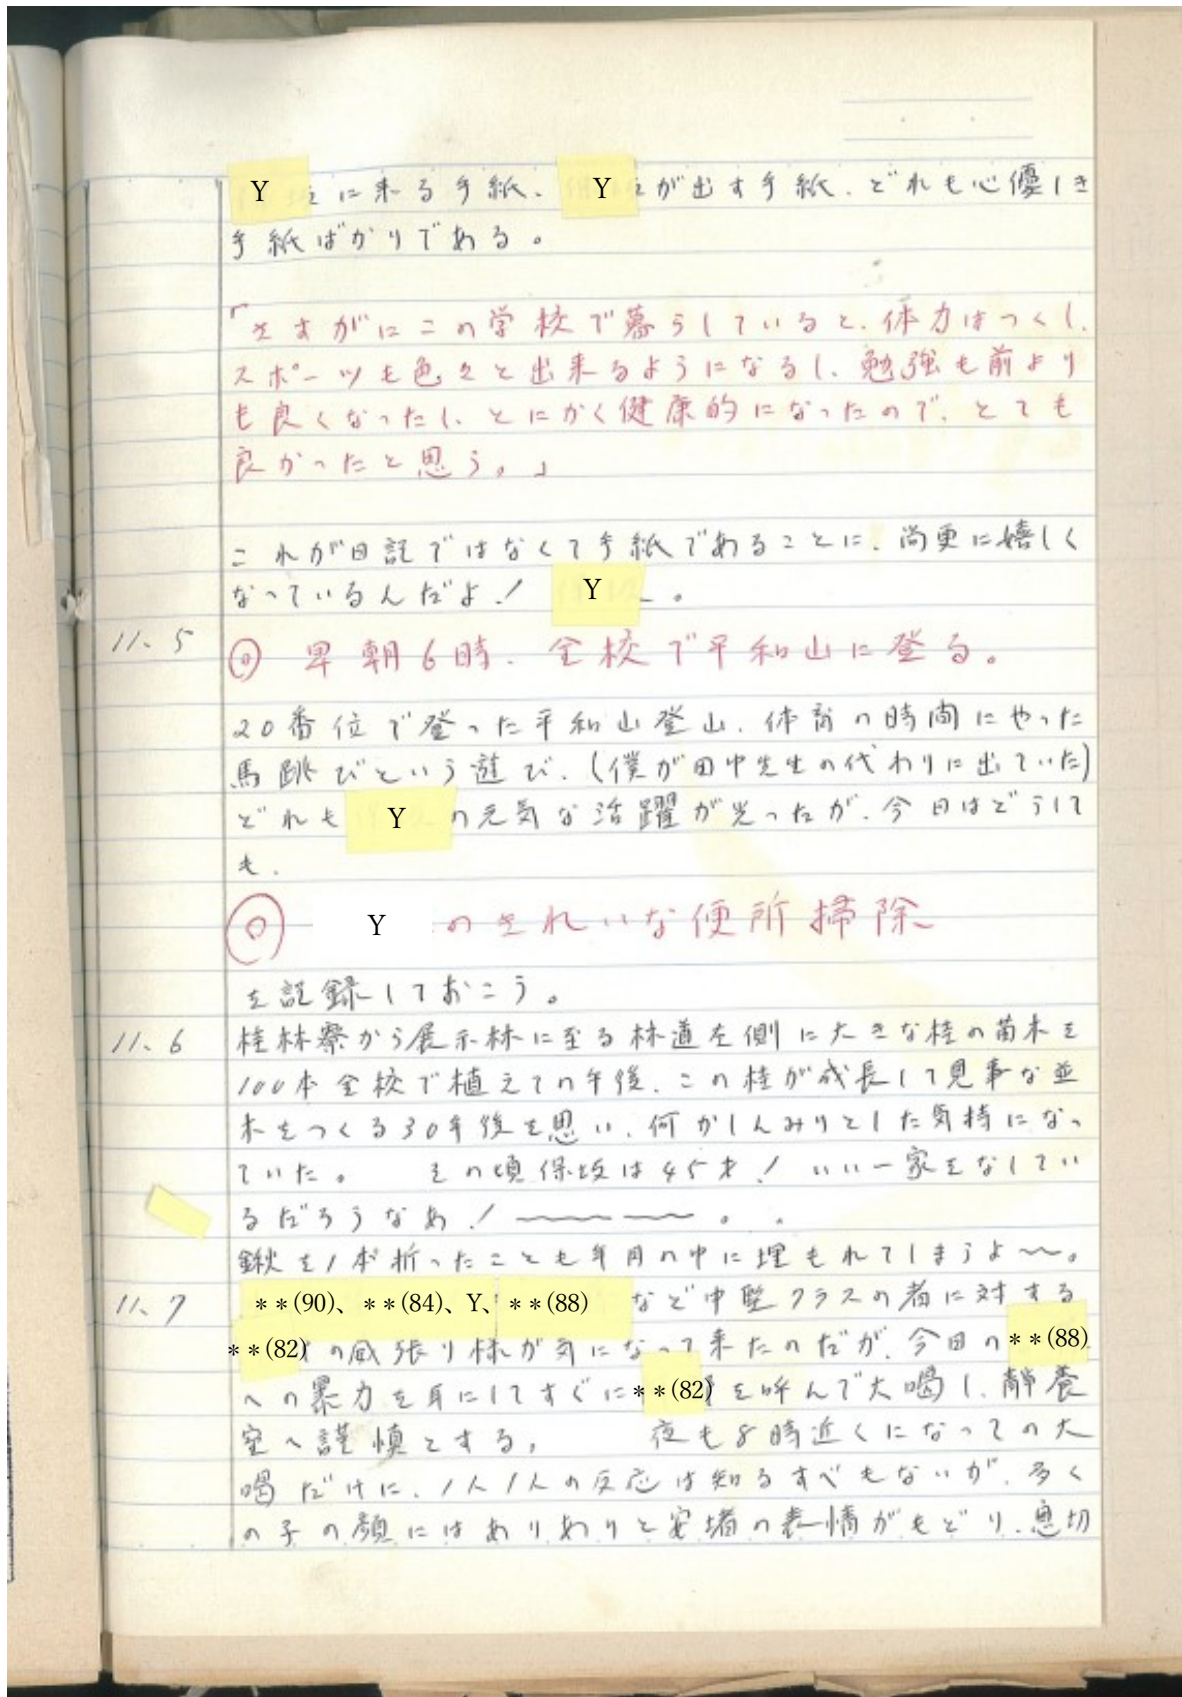 Yに来る手紙、Yが出す手紙、どれも心優しき
手紙ばかりである。
「さすがにこの学校で暮らしていると、体力はつくし、
スポーツも色々と出来るようになるし、勉強も前より
も良くなったし、とにかく健康的になったので、とても
良かったと思う。」
これが日記ではなくて手紙であることに、尚更に嬉しく
なっているんだよ!Y。
11、5
◎ 早朝6時、全校で平和山に登る。
20番位で登った平和山登山、体育の時間にやった
馬跳びという遊び、(僕が田中先生の代わりに出ていた)
どれもYの元気な活躍が光ったが、今日はどうして
も、
◎ Yのきれいな便所掃除
を記録しておこう。
11、6 桂林寮から展示林に至る林道左側に大きな桂の苗木を
100本全校で植えての午後、この桂が成長して見事な並
木をつくる30年後を思い、何かしんみりとした気持になっ
ていた。 その頃保坂は45才! いい一家をなしてい
るだろうなあ!〜〜〜。。
鍬を1本折ったことも年月の中に埋もれてしまうよ〜。
11、7 **(90)、**(84)、Y、**(88)など中堅クラスの者に対する
**(82)の威張り様が気になって来たのだが、今日の**(88)
への暴力を耳にしてすぐに**(82)を呼んで大喝し、静養
室へ謹慎とする。 夜も8時近くになっての大
喝だけに、1人1人の反応は知るすべもないが、多く
の子の顔にはありありと安堵の表情がもどり、息切